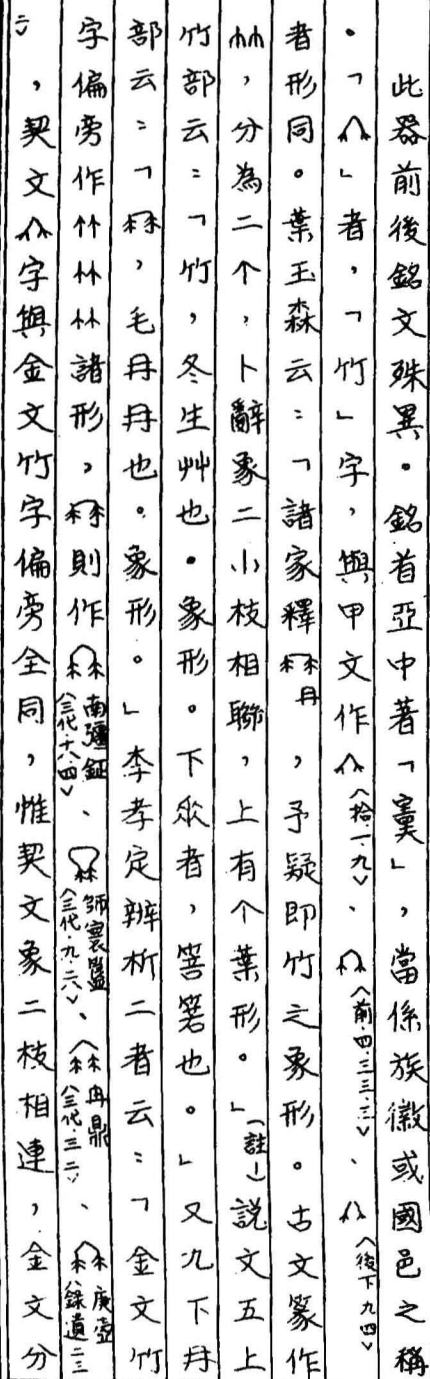 此器前後銘文殊異。銘首亞中著「𡫳」,當係族徽或國邑之稱
。「」者,「竹」字,與甲文作〈拾.一.九〉、〈前.四.三三.三〉、〈後下九四〉
者形同。葉玉森云:「諸家釋冄,予疑即竹之象形。古文篆作
,分為二个,卜辭象二小枝相聯,上有个葉形。」〔註一〕說文五上
竹部云:「竹,冬生艸也。象形。下垂者,箁箬也。」又九下冄
部云:「冄,毛冄冄也。象形。」李孝定辨析二者云:「金文竹
字偏旁作諸形,冄則作南彊鉦〈三代.十八.四〉、師寰簋〈三代.九.二六〉、冄鼎〈三代.三.二〉、庚壺〈錄遺二三
二〉,契文字與金文竹字偏旁全同,惟契文象二枝相連,金文分